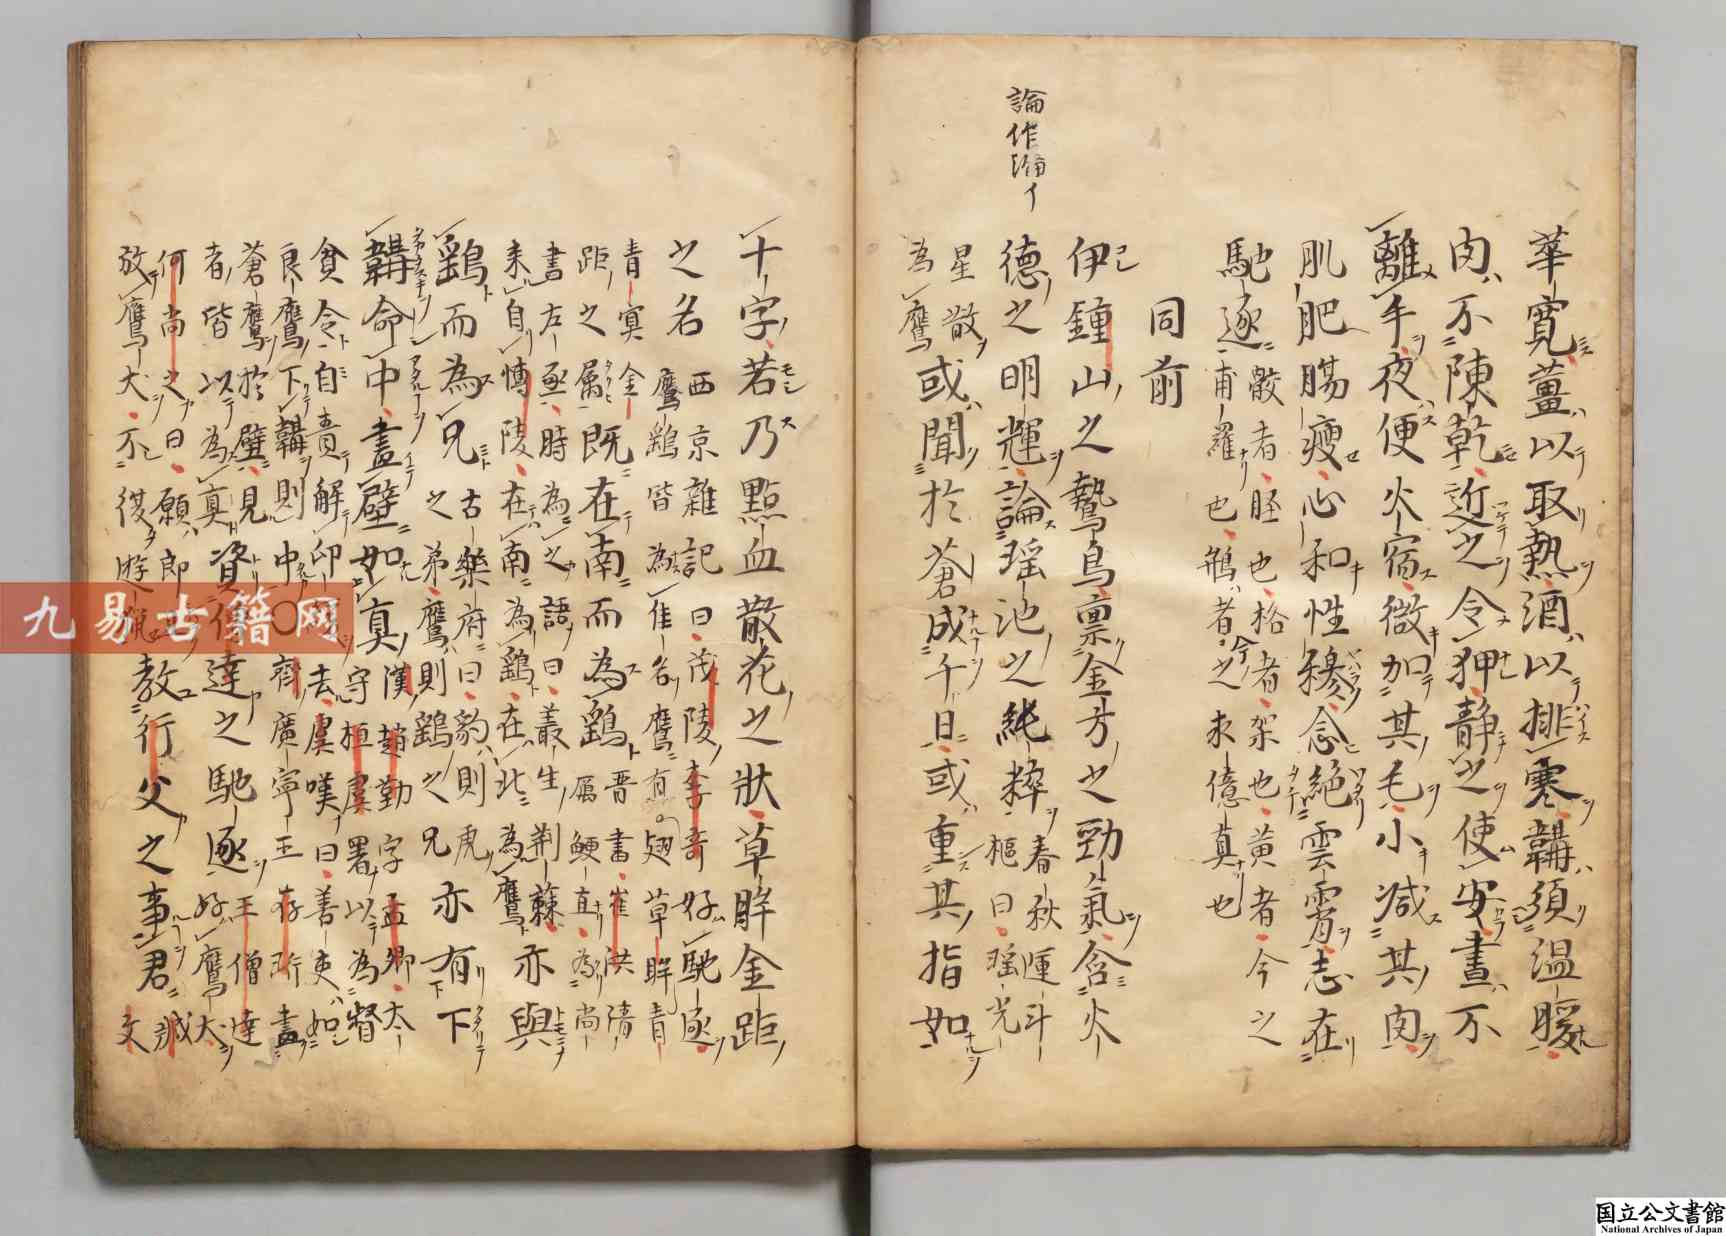 華寛薑以取熱酒以排寒鞲須温暖
肉不陳乾近之令狎静之使安晝不
離手夜便火宿微加其毛小减其肉
肌肥腸瘦心和性穆念絶雲霄志在
馳逐
骹者胫也格者架也黄者今之
甫羅也鵃者今之求億真也
同前
伊鍾山之鷙鳥禀金方之勁氣含火
論作瀹イ
德之明輝論瑶池之純粹
春秋運斗
樞曰瑶光
星散
為鷹
或聞於蒼成千日或重其指如
十字若乃點血散花之狀草眸金距
之名
西京雜記曰茂陵李奇好馳逐
鷹鷂皆為隹名鷹有翅草眸青
青寅金
距之属
既在南而為鷂
晋書崔洪清
厲鯁直為尚
書左丞時為之語曰叢生荆蕀
来自愽陵在南為鷂在北為鷹
亦與
鷂而為兄
古樂府曰豹則虎
之弟鷹則鷂之兄
亦有下
鞲命中盡壁如真
漢趙勤字孟卿太
守桓虞署以為督
貧令自責解印去虞嘆曰善吏如
良鷹下鞲則中
齊廣寧王存珩畫
蒼鷹於壁見
者皆以為真
資僧達之馳逐
王僧達
好鷹犬
何尚之曰願郎
放鷹犬不復遊
教行父之事君
臧
文
九易古籍网
国立公文書館
National Archives of Japan